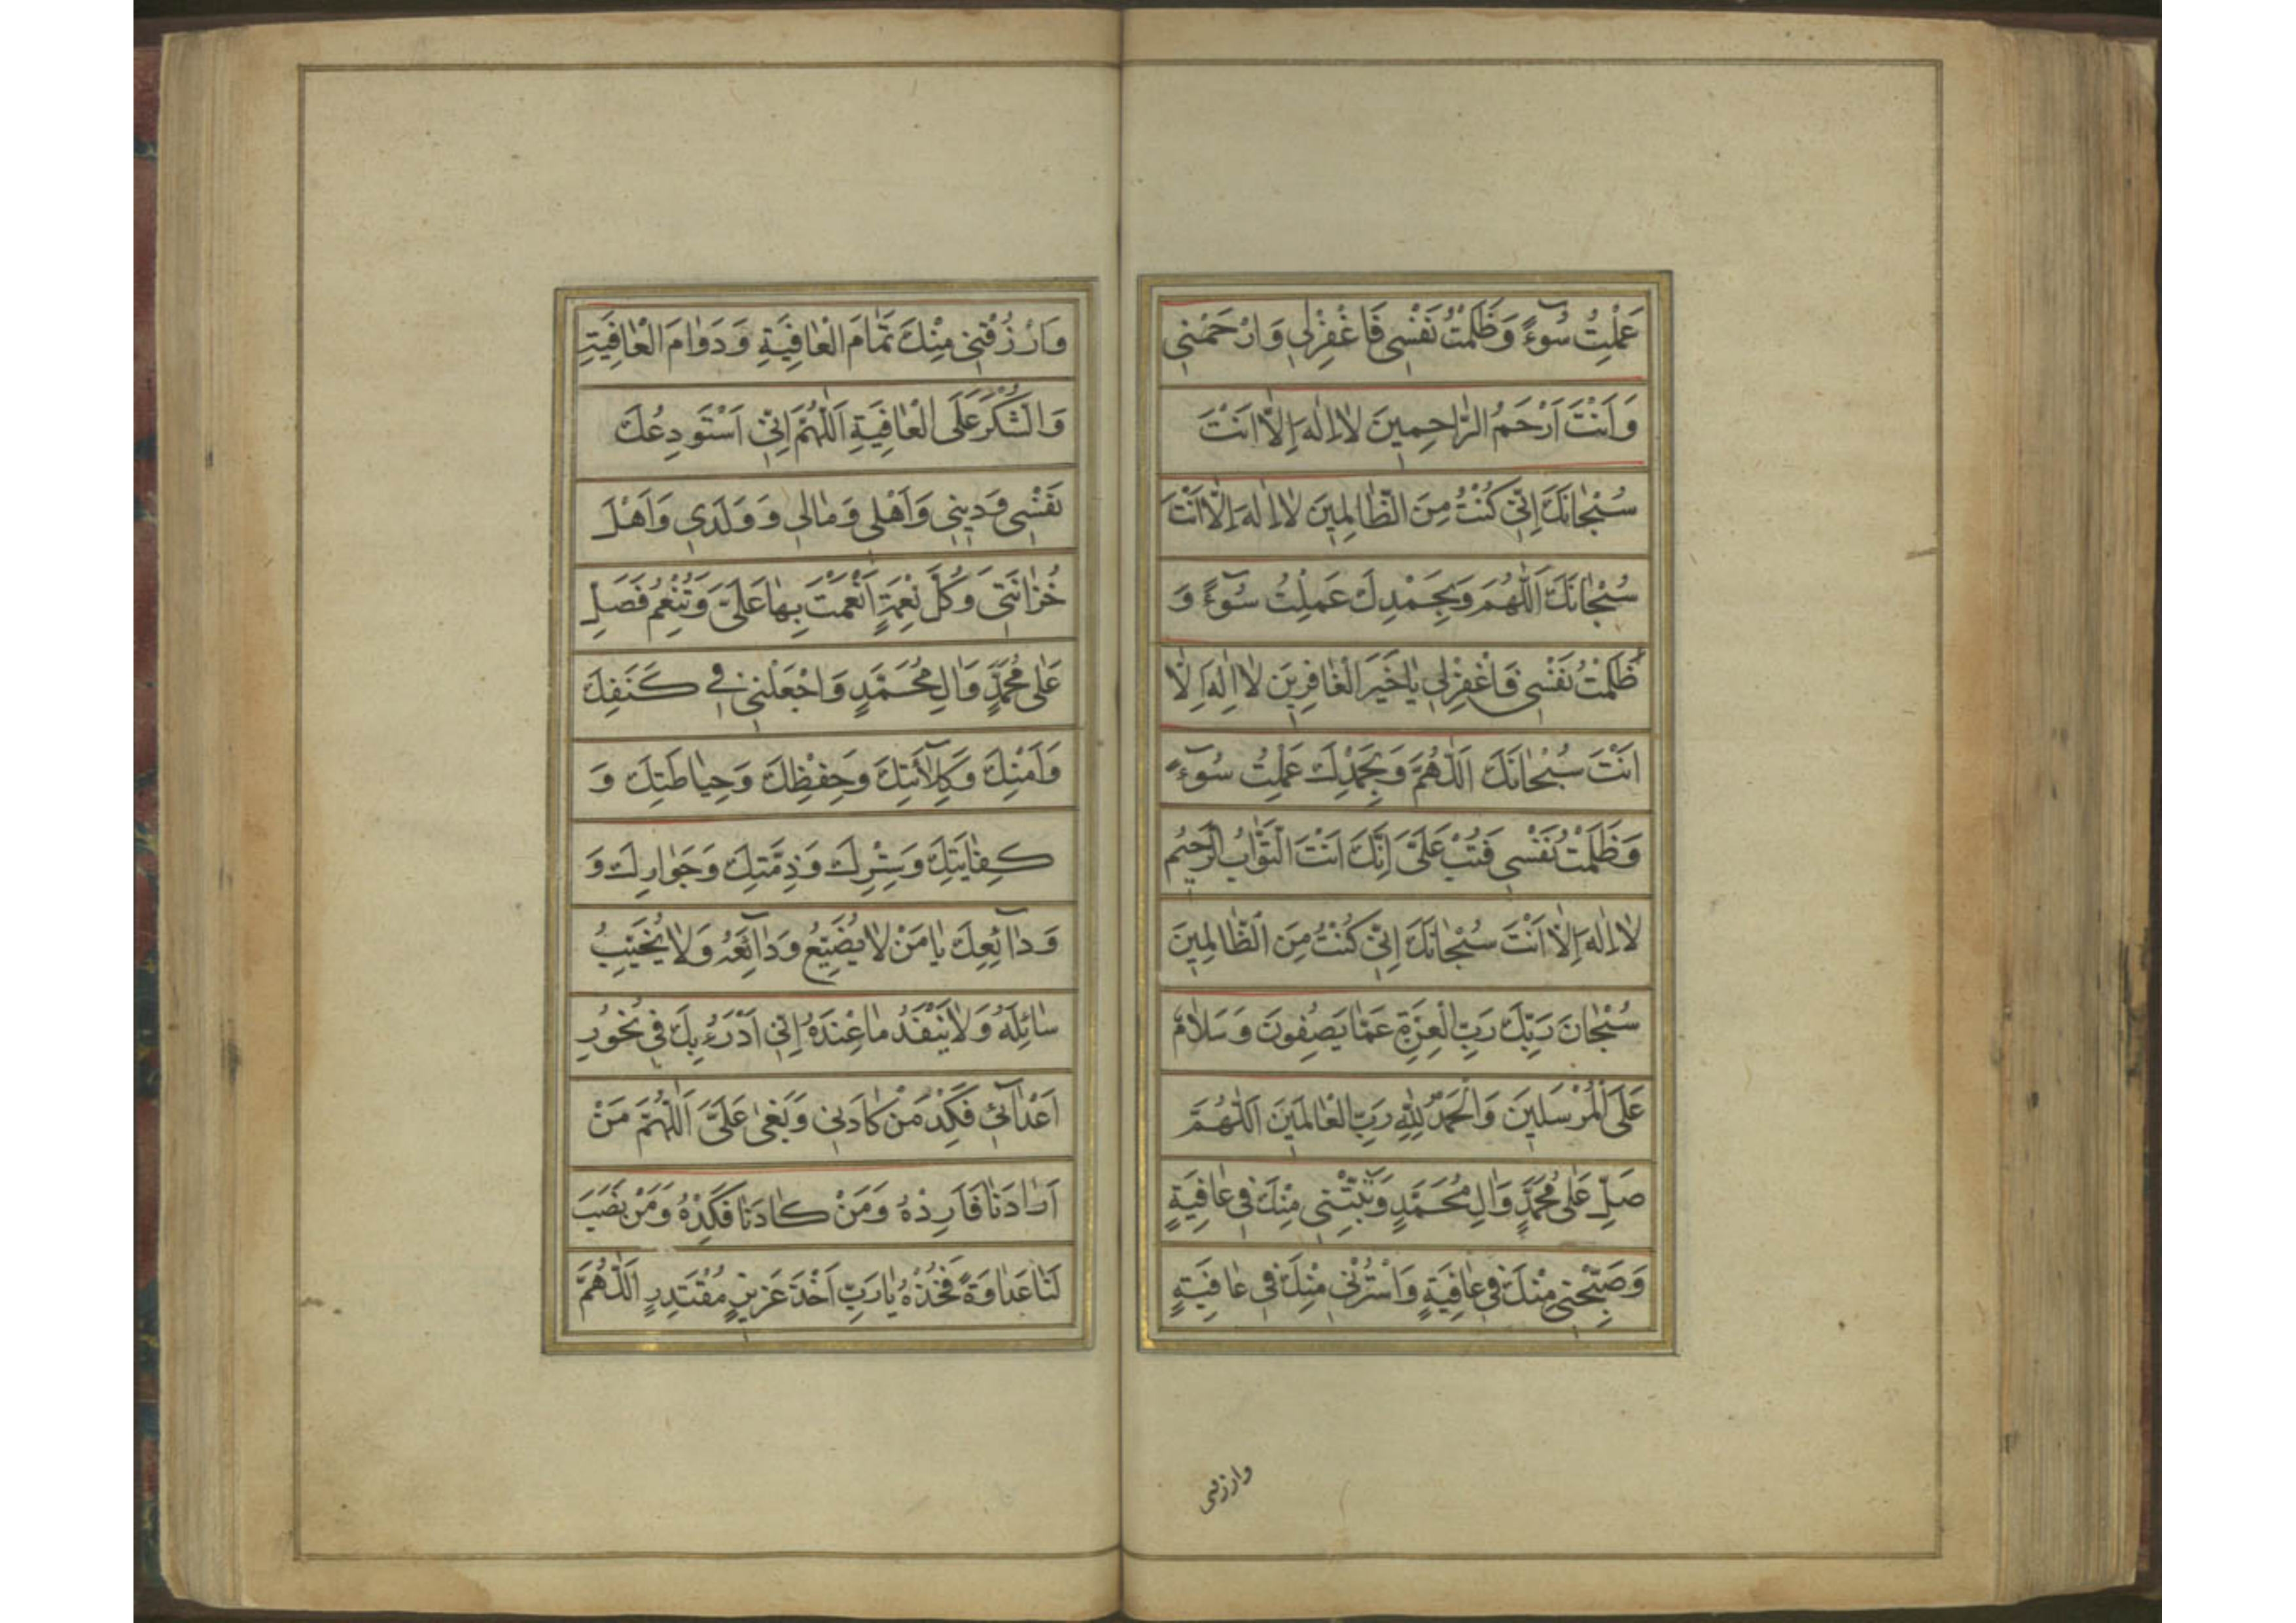 عَمِلْتُ سُوٓءً وَظَلَمْتُ نَفْسِي فَاغْفِرْلِي وَارْحَمْنِي
وَاَنْتَ اَرْحَمُ الرّٰاحِمِينَ لاٰاِلٰهَ اِلّاٰ اَنْتَ
سُبْحٰانَكَ اِنِّي كُنْتُ مِنَ الظّٰالِمِينَ لاٰاِلٰهَ اِلّاٰ اَنْتَ
سُبْحٰانَكَ اَللّٰهُمَّ وَبِحَمْدِكَ عَمِلْتُ سُوٓءً وَ
ظَلَمْتُ نَفْسِي فَاغْفِرْلِي يٰاخَيْرَ الْغٰافِرِينَ لاٰاِلٰهَ اِلّاٰ
اَنْتَ سُبْحٰانَكَ اَللّٰهُمَّ وَبِحَمْدِكَ عَمِلْتُ سُوٓءً
وَظَلَمْتُ نَفْسِي فَتُبْ عَلَيَّ اِنَّكَ اَنْتَ التَّوّٰابُ الرَّحِيمُ
لاٰاِلٰهَ اِلّاٰ اَنْتَ سُبْحٰانَكَ اِنِّي كُنْتُ مِنَ الظّٰالِمِينَ
سُبْحٰانَ رَبِّكَ رَبِّ الْعِزَّةِ عَمّٰا يَصِفُونَ وَسَلاٰمٌ
عَلَى الْمُرْسَلِينَ وَالْحَمْدُ لِلّٰهِ رَبِّ الْعٰالَمِينَ اَللّٰهُمَّ
صَلِّ عَلٰى مُحَمَّدٍ وَاٰلِ مُحَمَّدٍ وَبَيِّتْنِي مِنْكَ فِي عٰافِيَةٍ
وَصَبِّحْنِي مِنْكَ فِي عٰافِيَةٍ وَاسْتُرْنِي مِنْكَ فِي عٰافِيَةٍ
وارزقنی
وَارْزُقْنِي مِنْكَ تَمٰامَ الْعٰافِيَةِ وَدَوٰامَ الْعٰافِيَةِ
وَالشُّكْرَ عَلَى الْعٰافِيَةِ اَللّٰهُمَّ اِنِّي اَسْتَوْدِعُكَ
نَفْسِي وَدِينِي وَاَهْلِي وَمٰالِي وَوَلَدِي وَاَهْلَ
حُزٰانَتِي وَكُلَّ نِعْمَةٍ اَنْعَمْتَ بِهٰا عَلَيَّ وَتُنْعِمُ فَصَلِّ
عَلٰى مُحَمَّدٍ وَاٰلِ مُحَمَّدٍ وَاجْعَلْنِي فِي كَنَفِكَ
وَاَمْنِكَ وَكِلآٰئَتِكَ وَحِفْظِكَ وَحِيٰاطَتِكَ وَ
كِفٰايَتِكَ وَسِتْرِكَ وَذِمَّتِكَ وَجَوٰارِكَ وَ
وَدٰآئِعِكَ يٰامَنْ لاٰيُضَيِّعُ وَدٰآئِعَهُ وَلاٰيُخَيِّبُ
سٰائِلَهُ وَلاٰيَنْفَدُ مٰاعِنْدَهُ اِنِّي اَدْرَءُ بِكَ فِي نُحُورِ
اَعْدٰآئِي فَكِدْ مَنْ كٰادَنِي وَبَغٰى عَلَيَّ اَللّٰهُمَّ مَنْ
اَرٰادَنٰا فَاَرِدْهُ وَمَنْ كٰادَنٰا فَكِدْهُ وَمَنْ نَصَبَ
لَنٰا عَدٰاوَةً فَخُذْهُ يٰارَبِّ اَخْذَ عَزِيزٍ مُقْتَدِرٍ اَللّٰهُمَّ